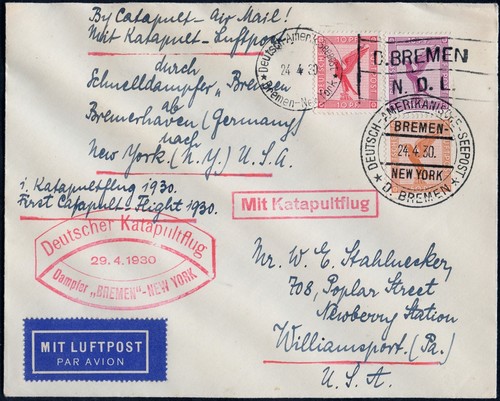 By Catapult - Air Mail!
Mit Katapult - Luftpost
durch
Schnelldampfer „Bremen
ab
Bremerhaven (Germany)
nach
New York. (N.Y.) U.S.A.
1. Katapultflug 1930.
First Catapult Flight 1930.
Deutsch-Amerik.
24 4 30
Bremen-New York
10 PF
10 PF
D. BREMEN
N. D. L.
DEUTSCH-AMERIKANISCHE-SEEPOST
BREMEN-
24.4.30.
NEW YORK
★ D. BREMEN ★
Mit Katapultflug
Deutscher Katapultflug
29.4.1930
Dampfer „BREMEN"-NEW YORK
Mr. W. E. Stahlnecker,
708, Poplar Street
Newberry Station
Williamsport. (Pa.)
U. S. A.
MIT LUFTPOST
PAR AVION